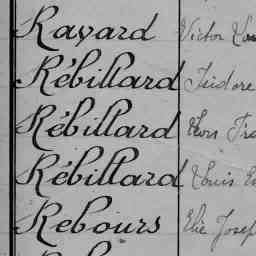 Ravard Victor
Rébillard Isidore
Rébillard
Rébillard Louis
Rebours Elie Josep